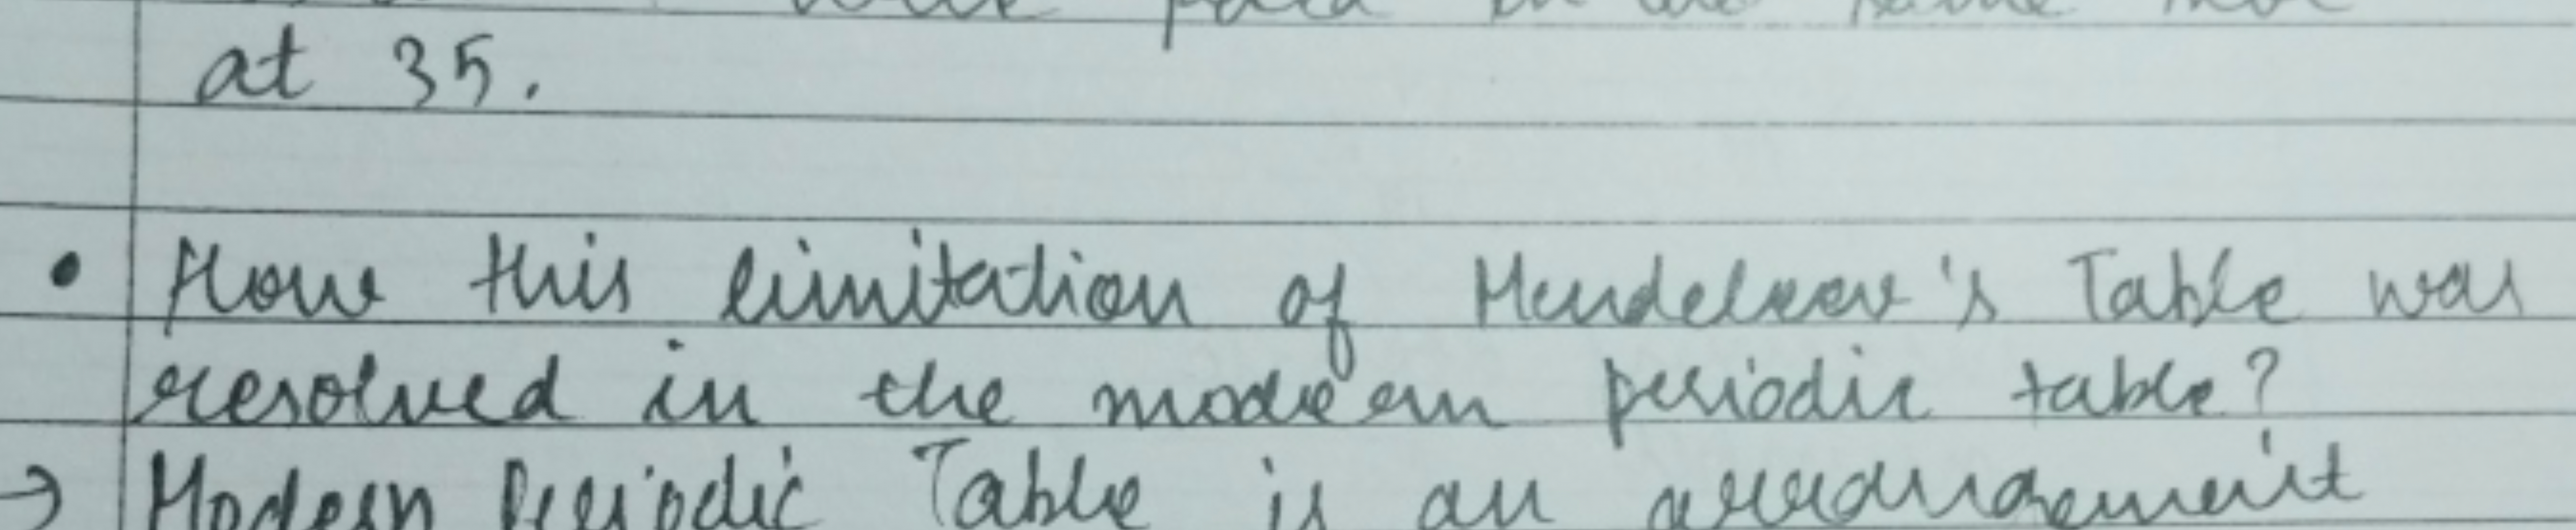 at 35.
• How this limitation of Mendeleev's Table was
resolved in the modern periodic table?
→ Modern Periodic Table is an arrangement